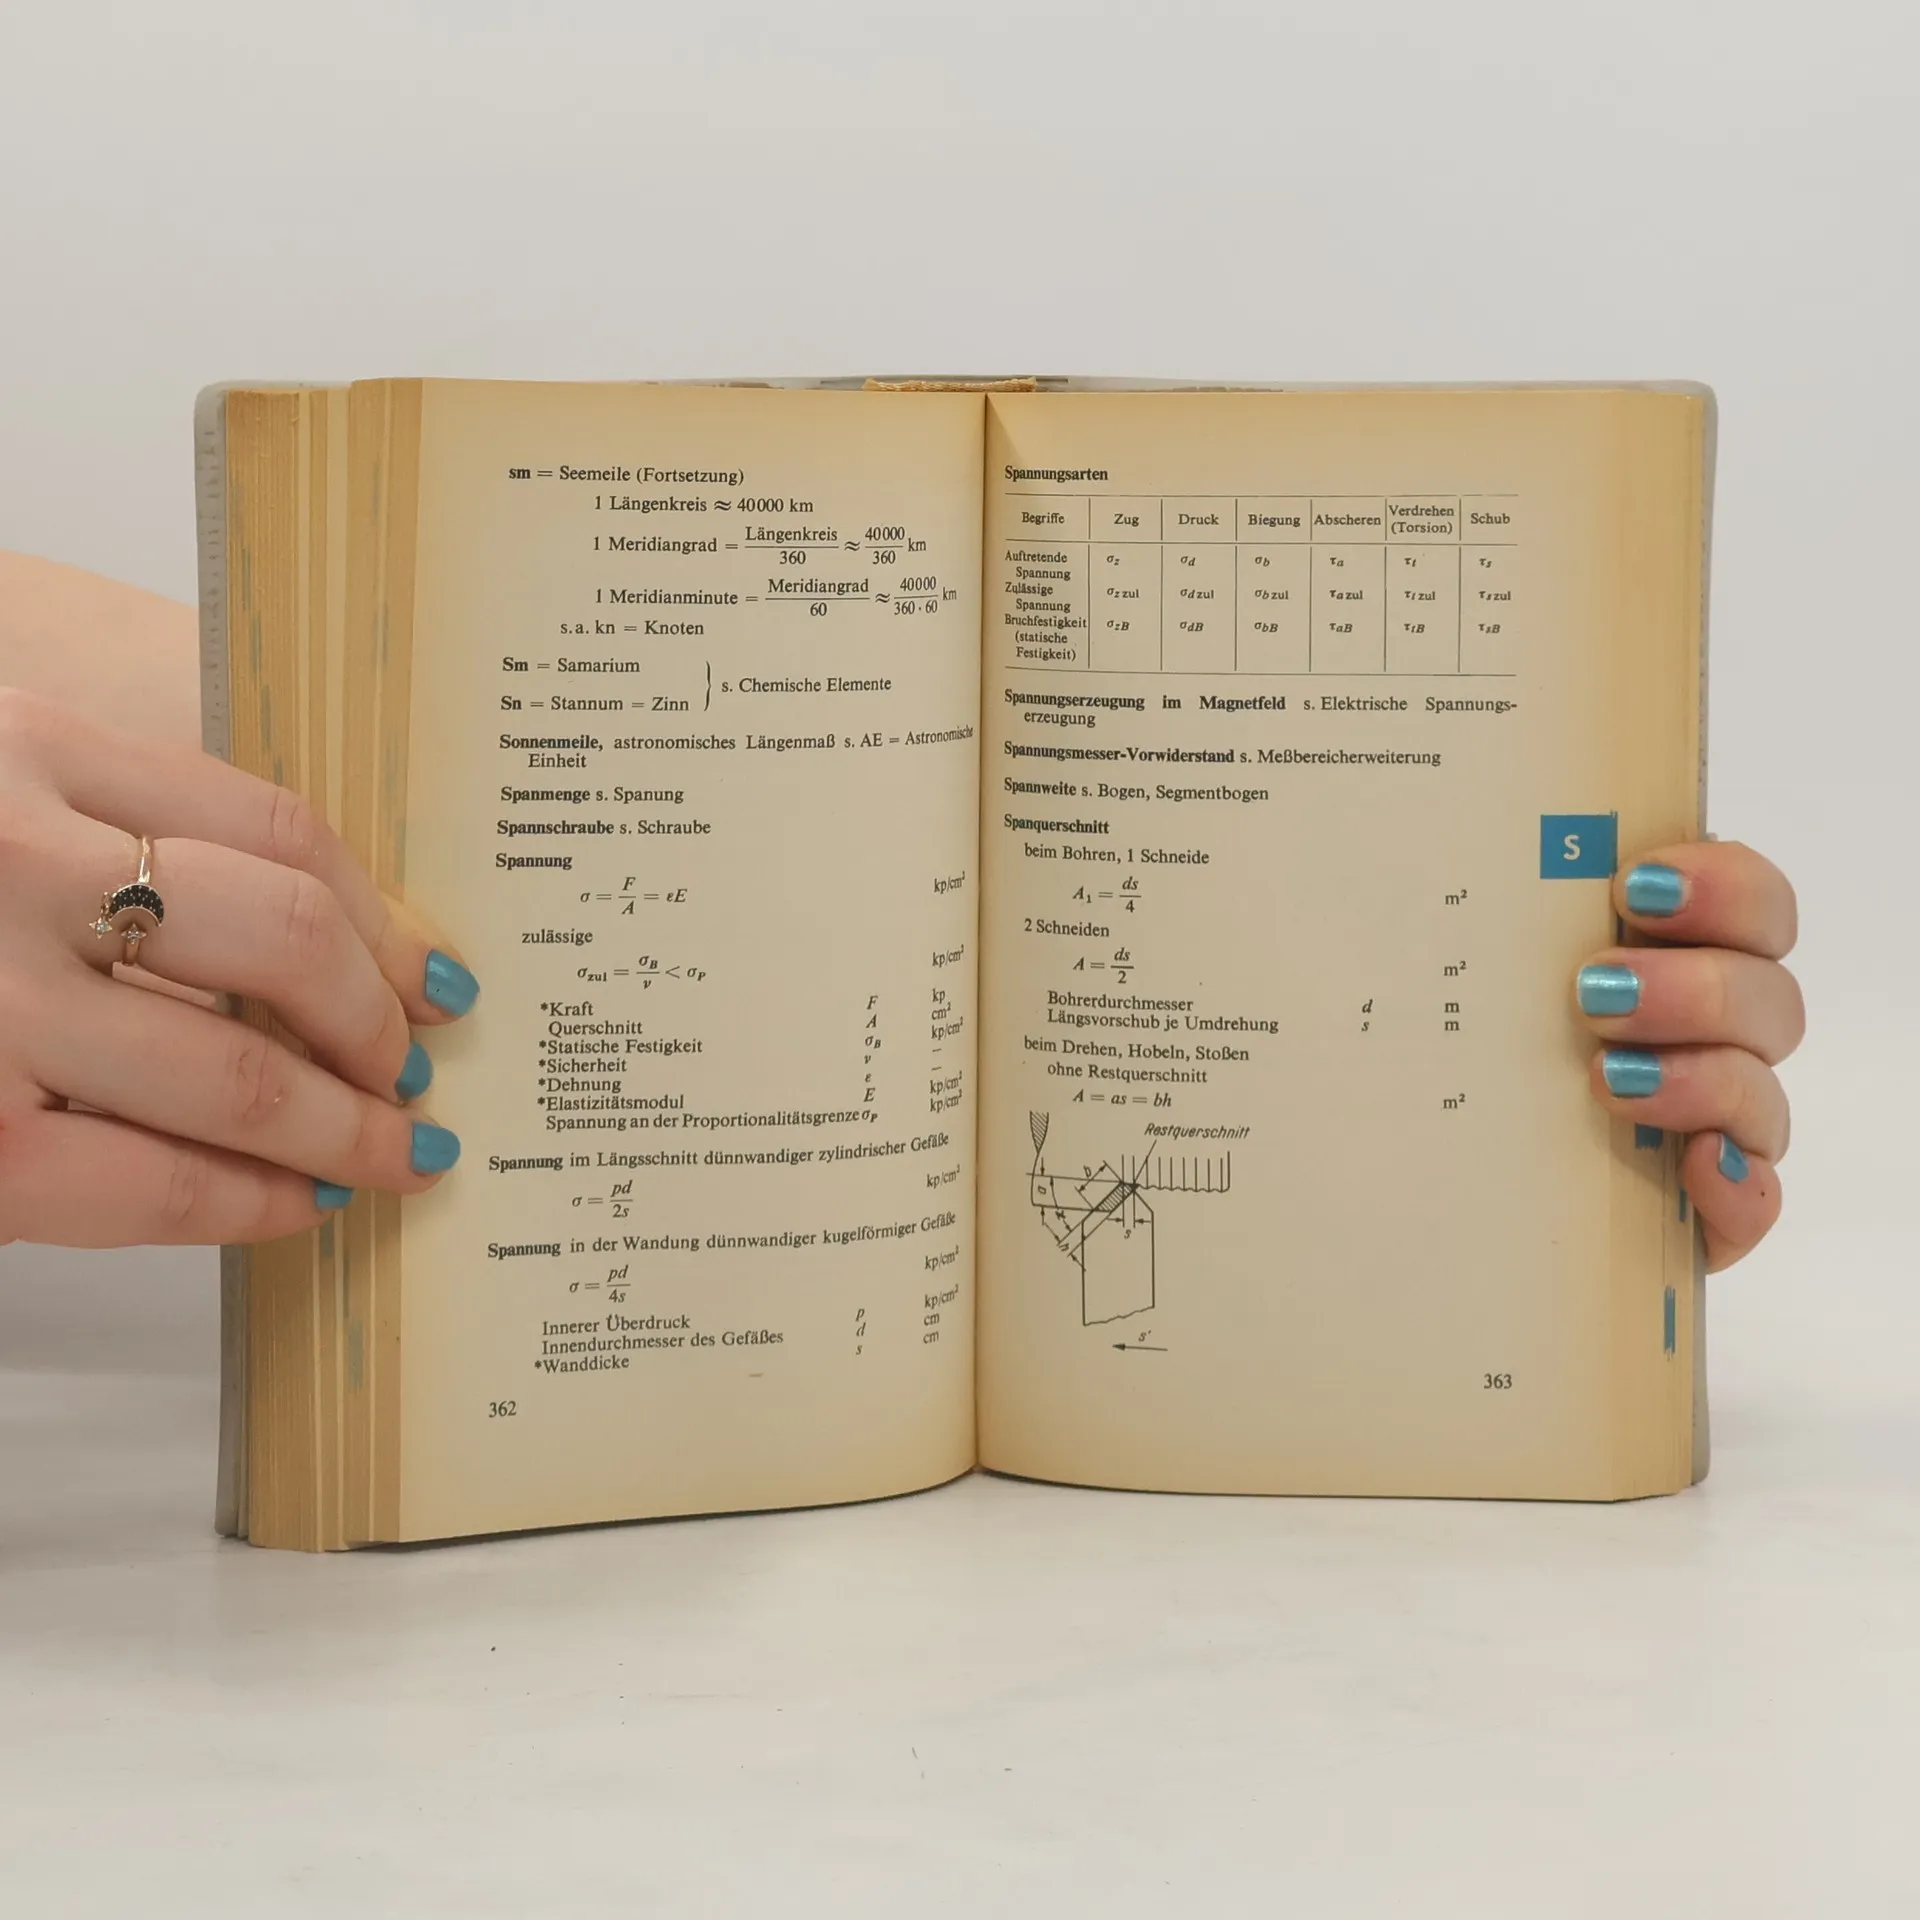 sm = Seemeile (Fortsetzung)
1 Längenkreis ≈ 40000 km
1 Meridiangrad = Längenkreis/360 ≈ 40000/360 km
1 Meridianminute = Meridiangrad/60 ≈ 40000/360·60 km
s.a. kn = Knoten
Sm = Samarium
s. Chemische Elemente
Sn = Stannum = Zinn
Sonnenmeile, astronomisches Längenmaß s. AE = Astronomische
Einheit
Spanmenge s. Spanung
Spannschraube s. Schraube
Spannung
σ = F/A = εE kp/cm²
zulässige
σzul = σB/ν < σP kp/cm²
*Kraft F kp
Querschnitt A cm²
*Statische Festigkeit σB kp/cm²
*Sicherheit ν —
*Dehnung ε —
*Elastizitätsmodul E kp/cm²
Spannung an der Proportionalitätsgrenze σP kp/cm²
Spannung im Längsschnitt dünnwandiger zylindrischer Gefäße
σ = pd/2s kp/cm²
Spannung in der Wandung dünnwandiger kugelförmiger Gefäße
σ = pd/4s kp/cm²
Innerer Überdruck p kp/cm²
Innendurchmesser des Gefäßes d cm
*Wanddicke s cm
362
Spannungsarten
Begriffe Zug Druck Biegung Abscheren Verdrehen (Torsion) Schub
Auftretende Spannung σz σd σb τa τt τs
Zulässige Spannung σz zul σd zul σb zul τa zul τt zul τs zul
Bruchfestigkeit (statische Festigkeit) σzB σdB σbB τaB τtB τsB
Spannungserzeugung im Magnetfeld s. Elektrische Spannungs-
erzeugung
Spannungsmesser-Vorwiderstand s. Meßbereicherweiterung
Spannweite s. Bogen, Segmentbogen
Spanquerschnitt
beim Bohren, 1 Schneide
A₁ = ds/4 m²
2 Schneiden
A = ds/2 m²
Bohrerdurchmesser d m
Längsvorschub je Umdrehung s m
beim Drehen, Hobeln, Stoßen
ohne Restquerschnitt
A = as = bh m²
Restquerschnitt
b
a
h
s
s'
363
S